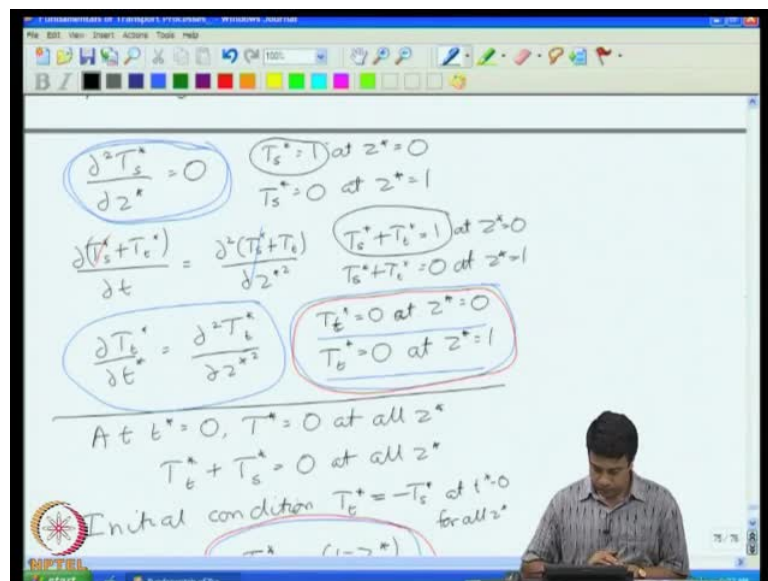 Fundamentals of Transport Processes_ - Windows Journal
File Edit View Insert Actions Tools Help
100%
B I
∂²T_s*/∂z* = 0  T_s* = 1 at z* = 0
T_s* = 0 at z* = 1
∂(T_s* + T_t*)/∂t = ∂²(T_s* + T_t)/∂z*²  T_s* + T_t* = 1 at z* = 0
T_s* + T_t* = 0 at z* = 1
∂T_t*/∂t* = ∂²T_t*/∂z*²  T_t* = 0 at z* = 0
T_t* = 0 at z* = 1
At t* = 0, T* = 0 at all z*
T_t* + T_s* = 0 at all z*
Initial condition T_t* = -T_s* at t* = 0
for all z*
(1-z*)
75/76
NPTEL
start